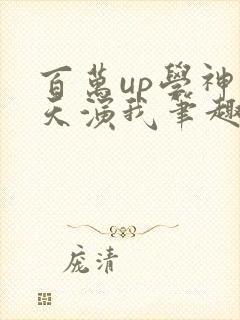 百萬up學神
天演我筆趣
庞清